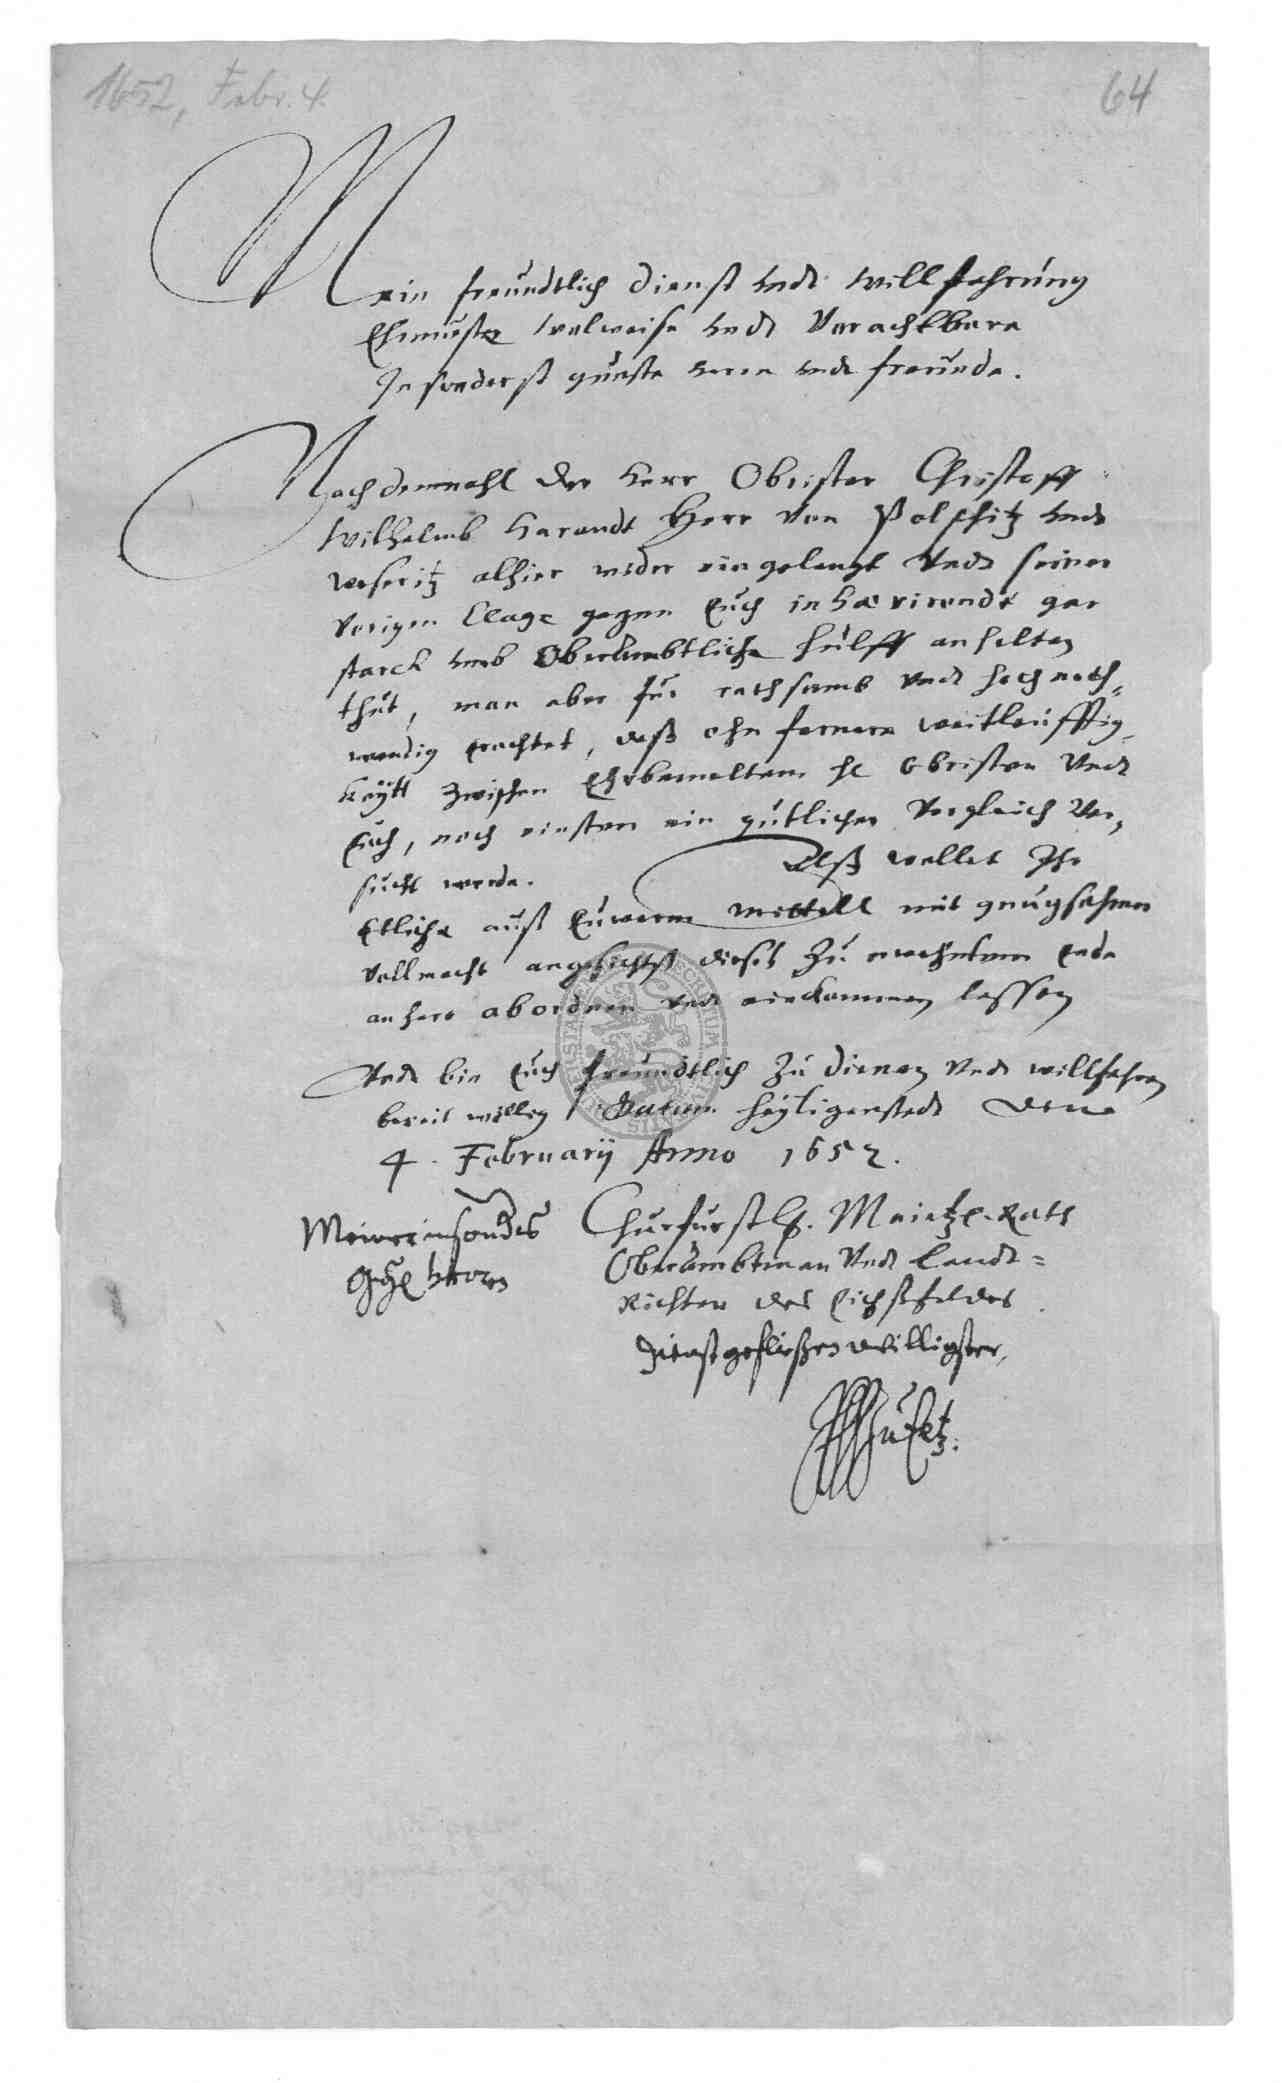 1652, Febr. 4.
64
Mein freundtlich dienst undt willfahrung
Ehrnueste wolweise undt Vorachtbare
Insonderst gunste herrn undt freunde.
Nachdemmahl der herr Obrister Christoff
Wilhelmb Harandt Herr von Polschitz undt
Weseritz alhier wider eingelangt Undt seiner
Vorigen Clage gegen Euch inhærirendt gar
starck umb Oberambtliche hulff anhalten
thut, man aber fur rathsamb Undt hochnoth=
wendig erachtet, daß ohn fernere weitleufftig
keytt zwischen Ehrbemeltem H Obristen Undt
Euch, noch einsten ein gutlicher Vergleich Ver,
sucht werde. Alß wollet Ihr
Etliche auß Euwerm mittell mit gnugsahmer
Vollmacht angesichts dieses zu erwehntem ende
anhero abordnen Undt einkommen lassen
Undt bin Euch freundtlich zu dienen Undt willfahren
bereit willig Datum Heyligenstadt den
4. Februarij Anno 1652.
Meiner insonders
herren
Churfurstl. Maintzl. Rath
Oberambtman Undt Landt=
Richter des Eichsfeldes
Dienstgefließen williger,